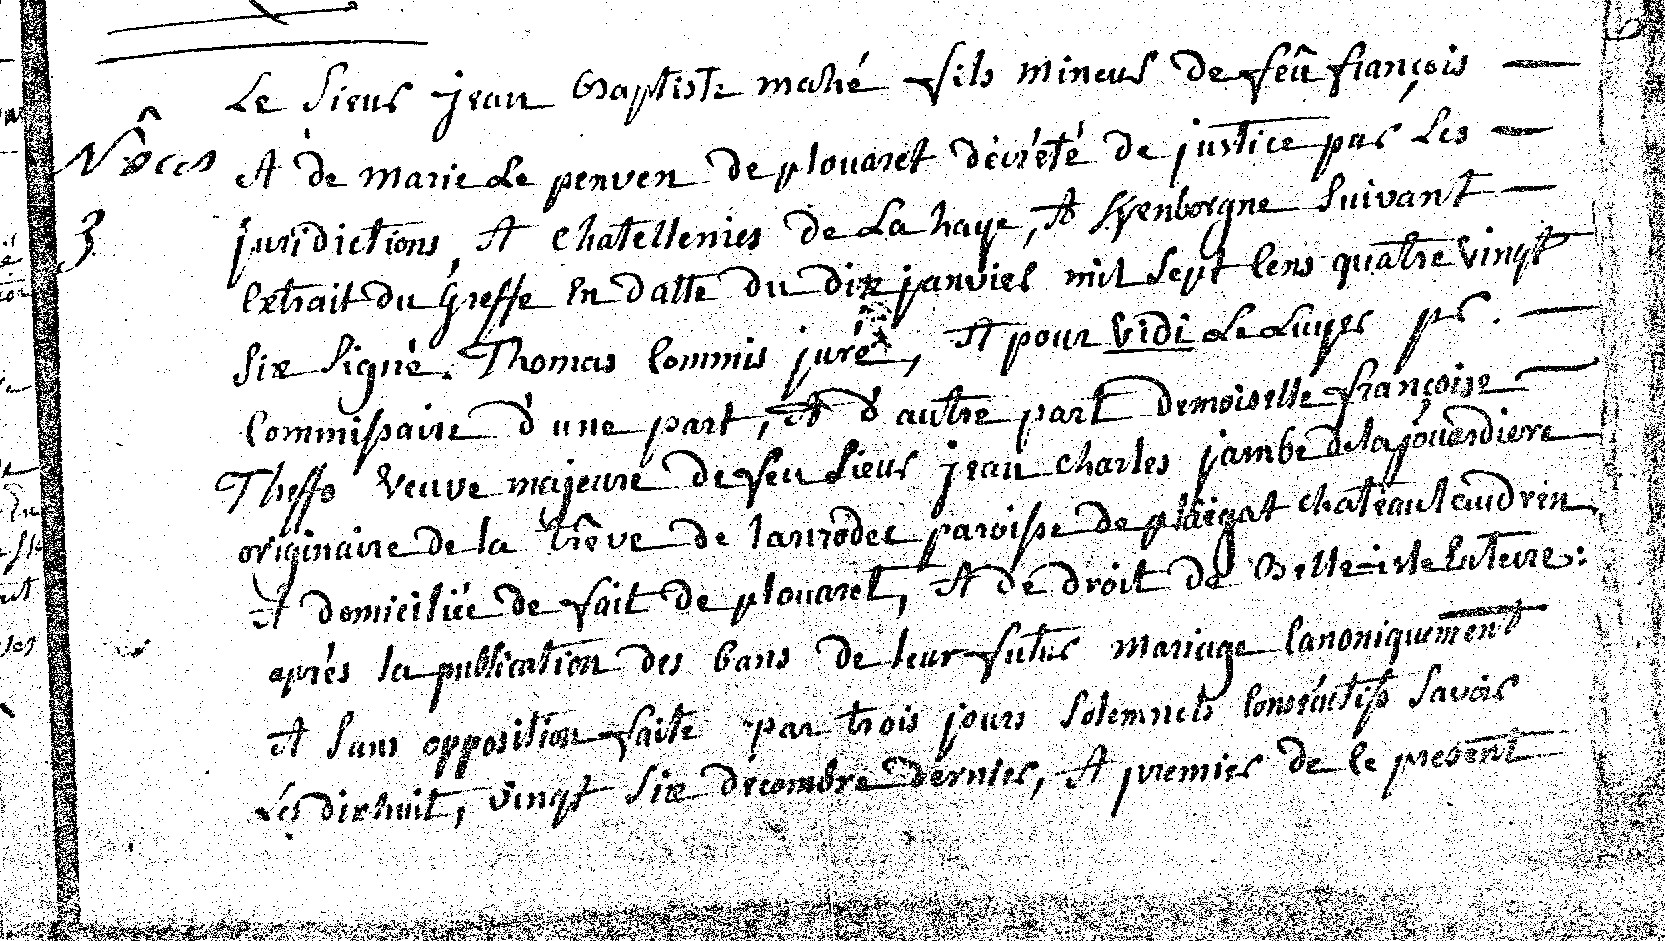 Le Sieur jean Baptiste mahé fils mineur de feû françois
Nôces
et de marie Le penven de plouaret décrété de justice par Les
3
juridictions et chatellenies de La haye, et Kyenborgne Suivant
Extrait du Greffe En datte du dix janvier mil Sept Cens quatre vingt
Six Signé. Thomas Commis juré, et pour vidi Le Luyer pr.
Commissaire d'une part, et d'autre part demoiselle françoise
Thesso veuve majeure de feu Sieur jean charles jambe de la jouërdiere
originaire de la trêve de lanrodec paroisse de plöegat chateaulaudren
et domiciliée de fait de plouaret, et de droit de Belle-isle En terre:
après la publication des bans de leur futur mariage Canoniquement
et Sans opposition faite par trois jours Solemnels Consécutifs Savoir
Les dixhuit, vingt Six décembre dernier, et premier de le present